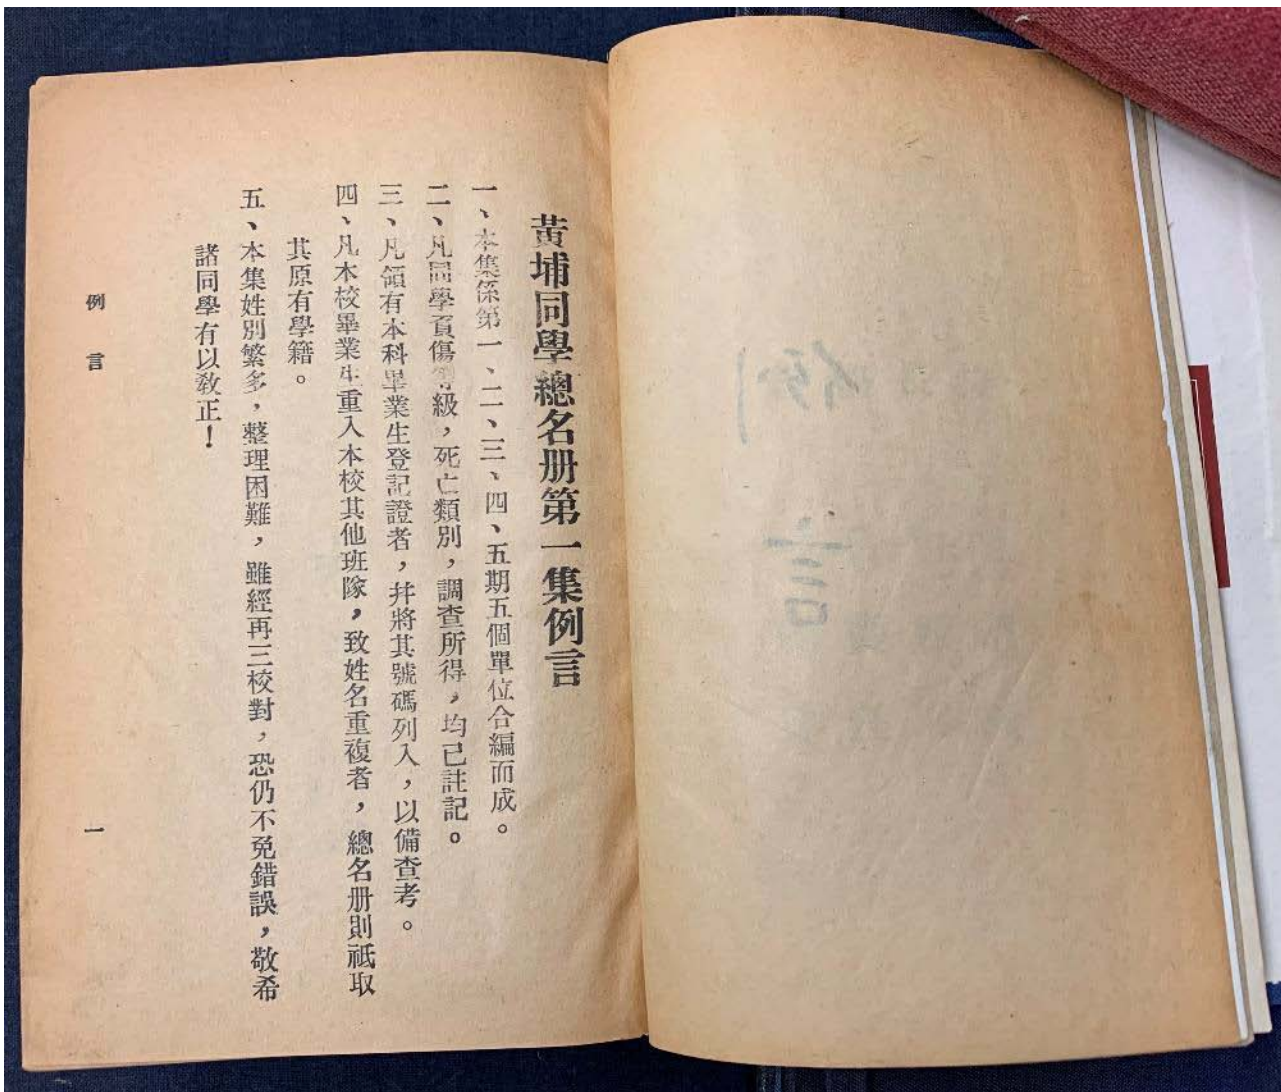 黃埔同學總名册第一集例言
一、本集係第一、二、三、四、五期五個單位合編而成。
二、凡同學負傷等級，死亡類別，調查所得，均已註記。
三、凡領有本科畢業生登記證者，幷將其號碼列入，以備查考。
四、凡本校畢業生重入本校其他班隊，致姓名重複者，總名册則祗取
其原有學籍。
五、本集姓別繁多，整理困難，雖經再三校對，恐仍不免錯誤，敬希
諸同學有以敎正！
例言
一
例言